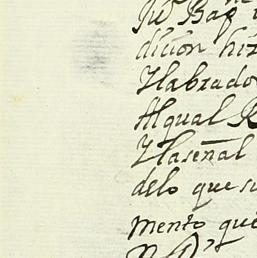 Ju Bap
dicion hiz
Ylabrado
Alqual R
Ylaseñal
delo que su
mento que